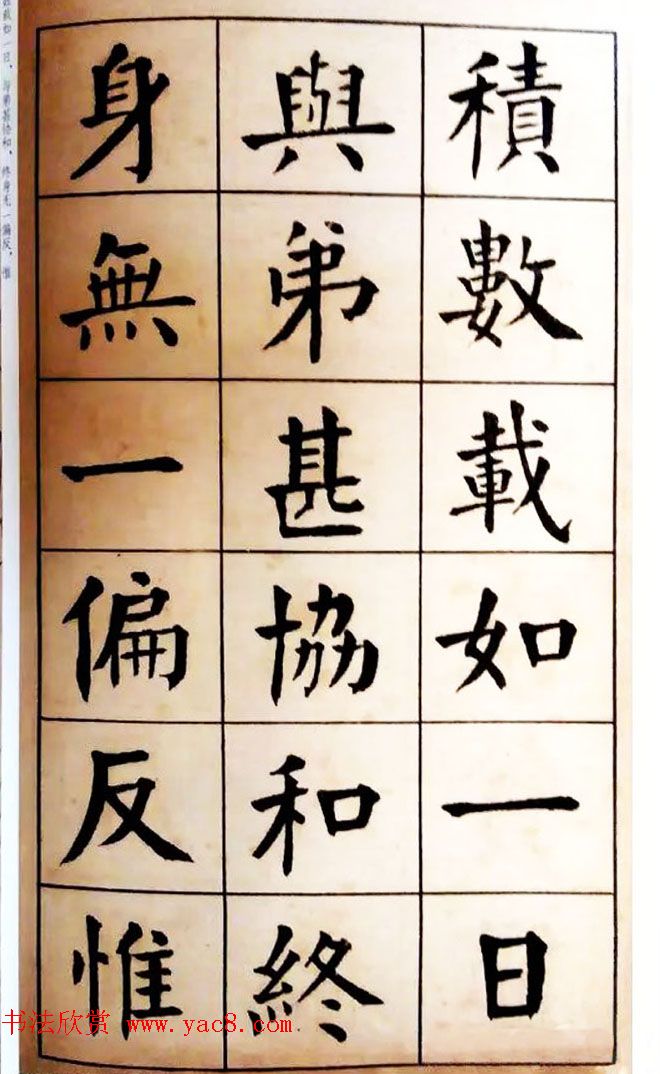 積數載如一日
與弟甚協和終
身無一偏反惟
载如一日，与弟甚协和，终身无一偏反，惟
书法欣赏 www.yac8.com